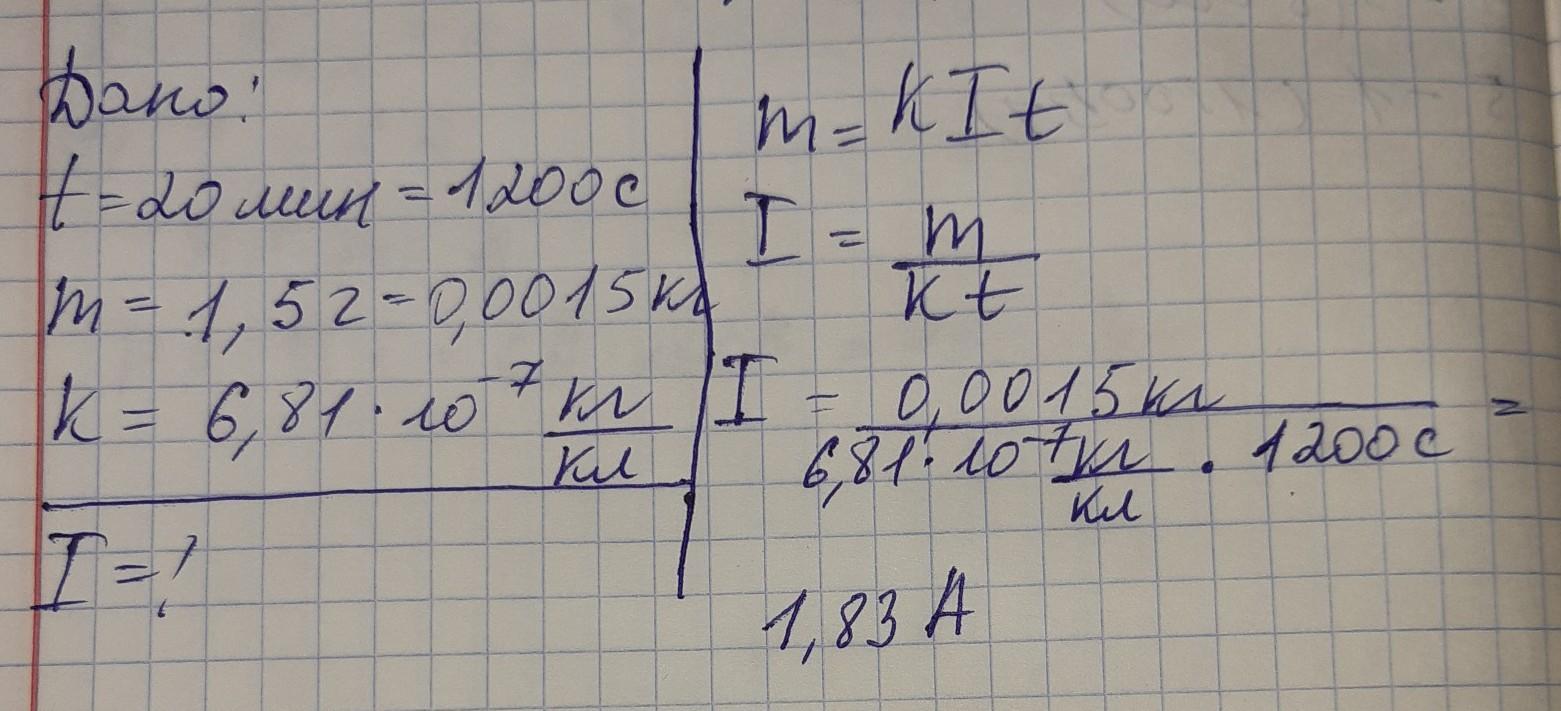 Дано:
t = 20 мин = 1200 с
m = 1,5 г = 0,0015 кг
k = 6,81 · 10⁻⁷ кг/кл
I = ?
m = k I t
I = m / k t
I = 0,0015 кг / 6,81 · 10⁻⁷ кг/кл · 1200 с =
1,83 А